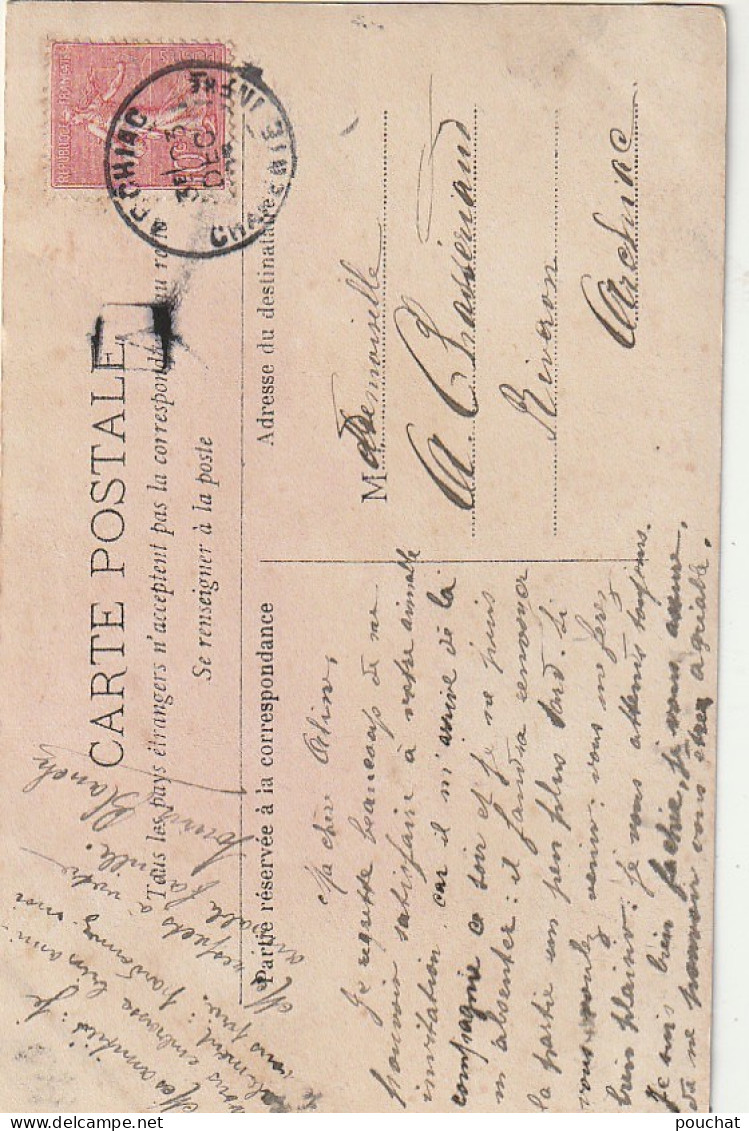 CARTE POSTALE
Tous les pays étrangers n'acceptent pas la correspondance au
Se renseigner à la poste
Partie réservée à la correspondance
Adresse du destinataire
RÉPUBLIQUE FRANÇAISE
POSTES
10
ARCHIAC
DEC
CHARENTE INFRE
Mademoiselle
A.
Archiac
Ma chère
Je regrette beaucoup de ne
pouvoir satisfaire à votre aimable
invitation car il m'arrive de la
compagnie ce soir et je ne puis
m'absenter: il faudra renvoyer
la partie un peu plus tard. Si
vous voulez venir: vous me ferez
bien plaisir: je vous attends toujours.
Je suis bien fachée, je vous assure,
de ne pouvoir vous être agréable.
Mes amitiés: je
vous embrasse bien ami-
calement: pardonnez-moi
je vous prie.
Mes respects à votre
aimable famille.
Blanche
pouchat